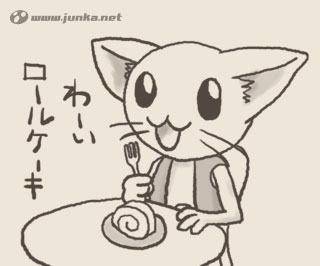 www.junka.net
わーい
ロールケーキ